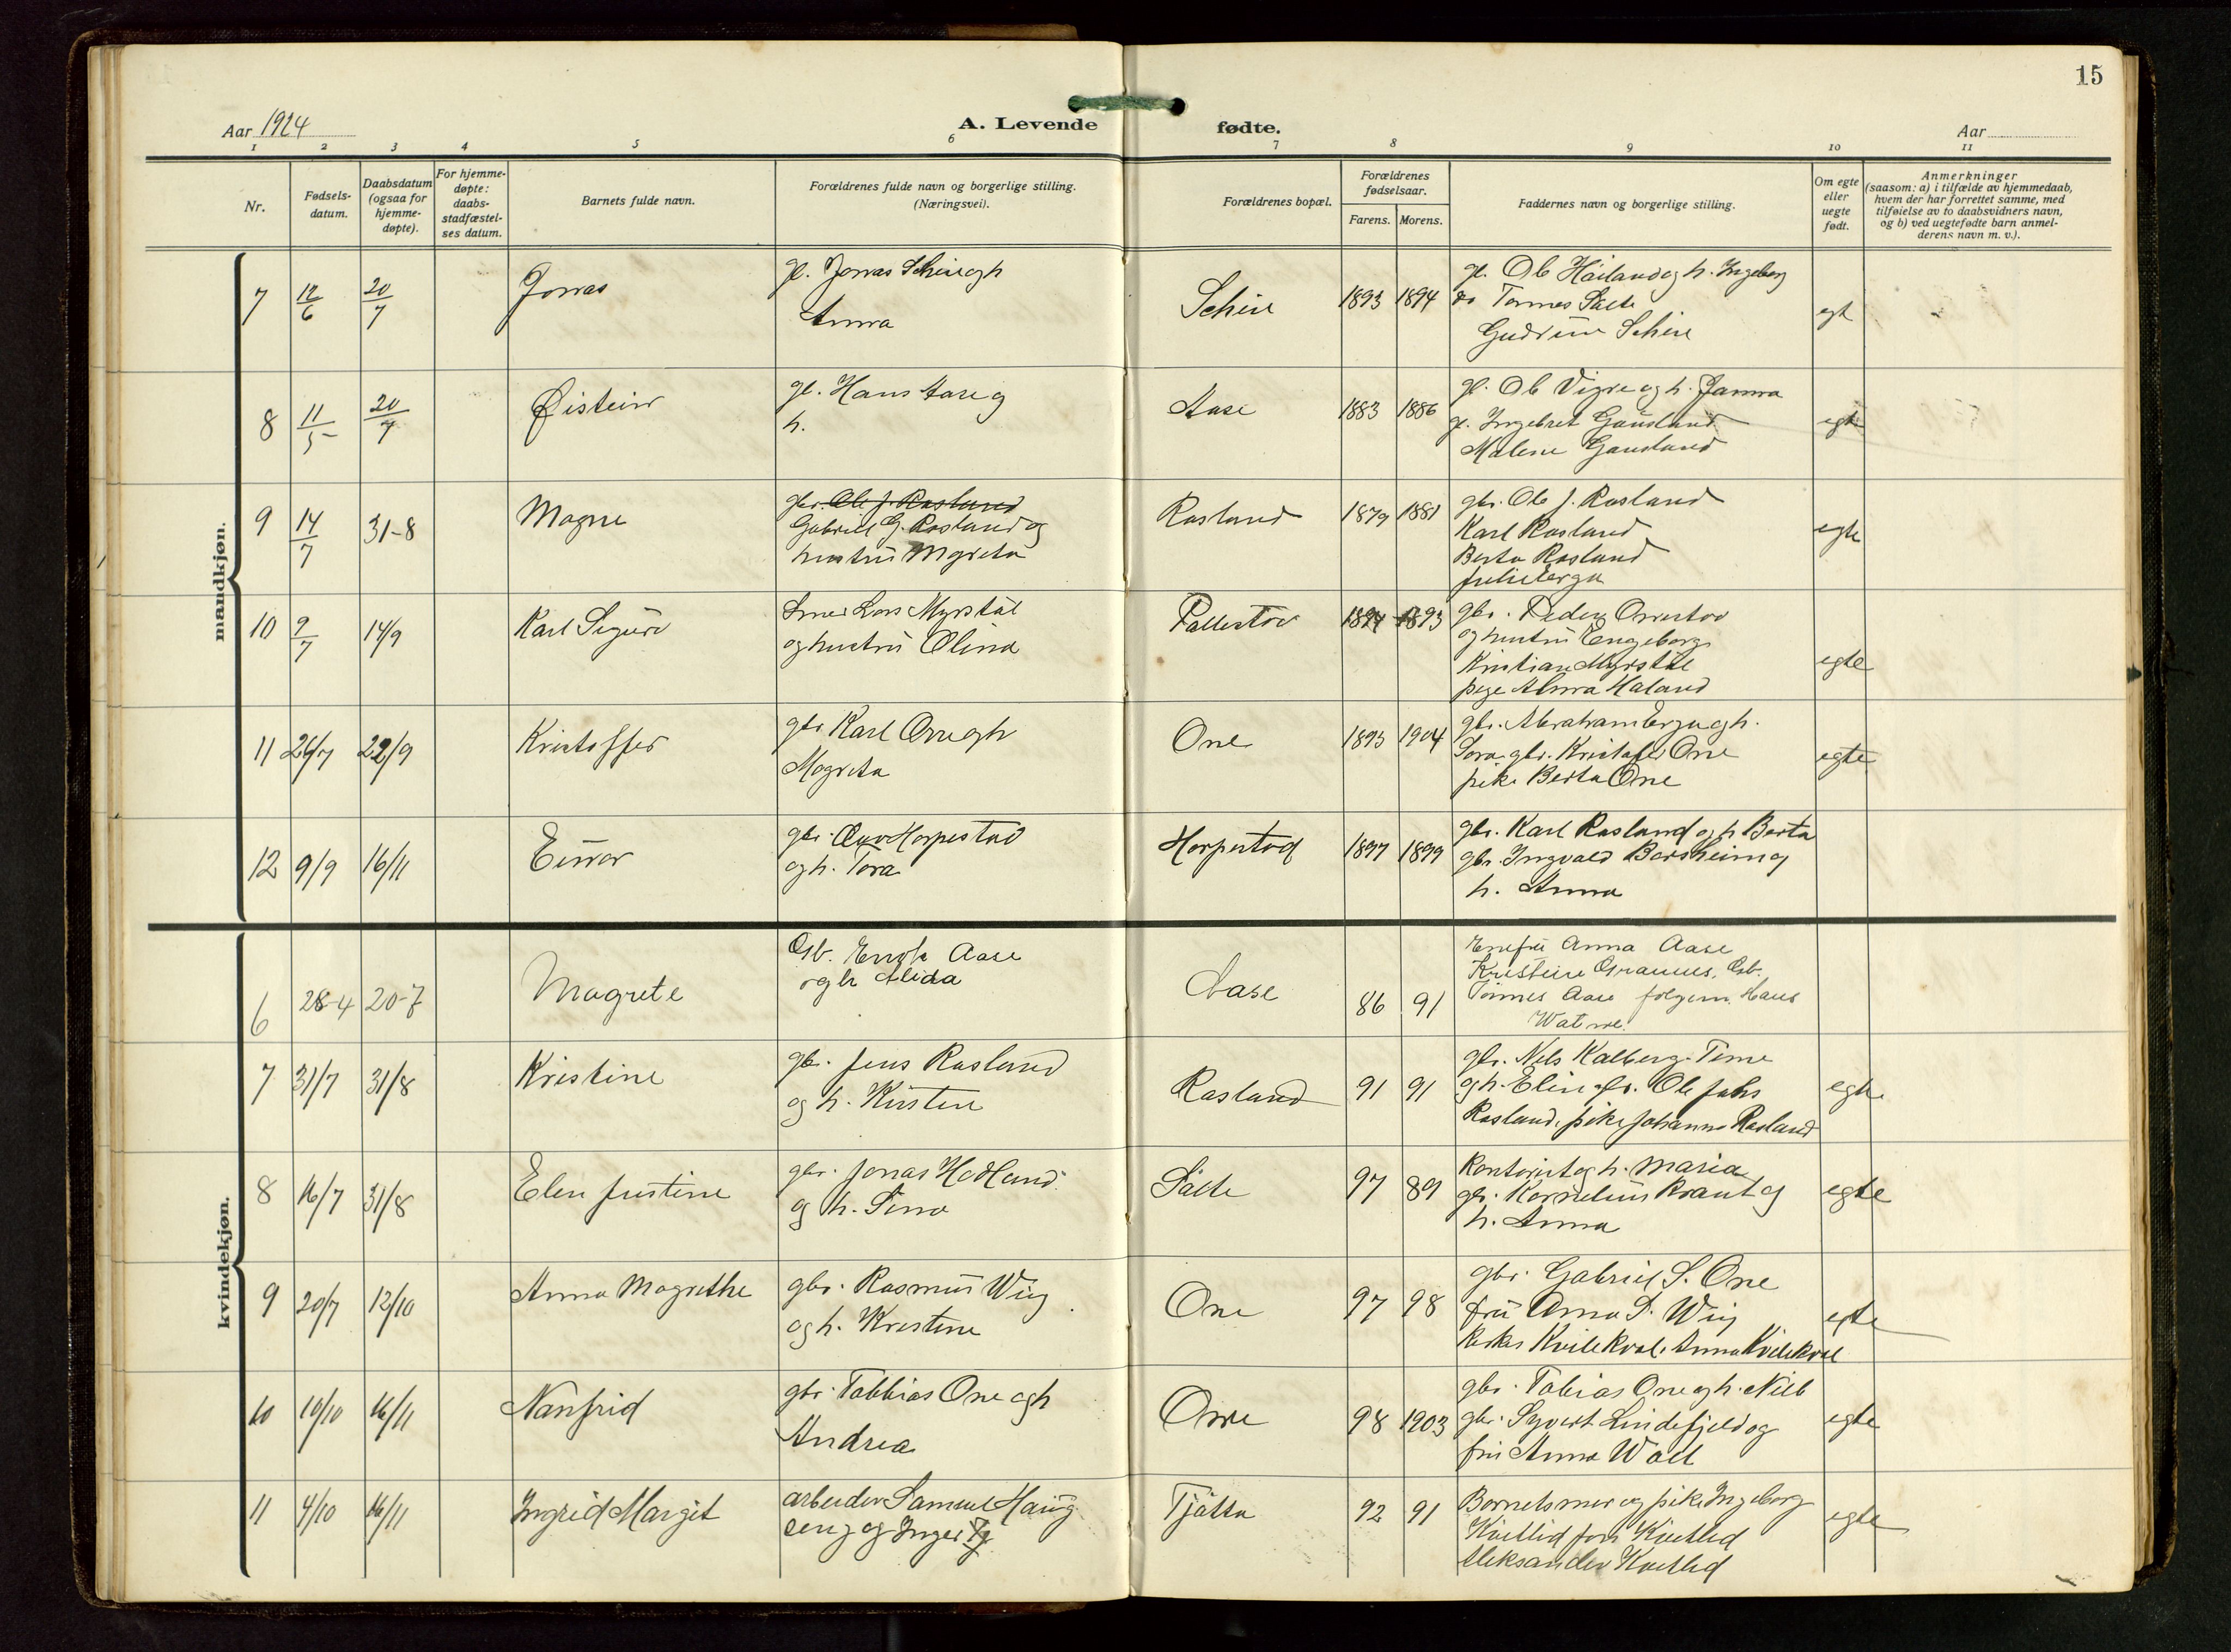 15
Aar 1924
A. Levende fødte.
Aar
1 2 3 4 5 6 7 8 9 10 11
Nr.
Fødsels-
datum.
Daabsdatum
(ogsaa for
hjemme-
døpte).
For hjemme-
døpte:
daabs-
stadfæstel-
ses datum.
Barnets fulde navn.
Forældrenes fulde navn og borgerlige stilling.
(Næringsvei).
Forældrenes bopæl.
Forældrenes
fødselsaar.
Farens. Morens.
Faddernes navn og borgerlige stilling.
Om egte
eller
uegte
født.
Anmerkninger
(saasom: a) i tilfælde av hjemmedaab,
hvem der har forrettet samme, med
tilføielse av to daabsvidners navn,
og b) ved uegtefødte barn anmel-
derens navn m. v.).
mandkjøn.
7 12/6 20/7 Jonas
gl. Jonas
Anna
1893 1894
gl. Ole Håiland og h. Ingeborg
do Tønnes Salte
Gudrun
egt
8 11/5 20/7 Øistein
gl. Hans Aase og
h.
Aase 1883 1886
gl. Ole Vigre og h. Janna
gl. Ingebret Gausland
Malene Gausland
egte
9 14/7 31-8 Magne
gbr. Ole J. Rosland
Gabriel G. Rosland og
hustru Mgreta
Rosland 1879 1881
gbr. Ole J. Rosland
Karl Rosland
Berta Rosland
Julie Erga
egte
10 9/7 14/9 Karl Sigurd
Lars Myrstøl
og hustru Olina
1894 1893
gbr. Peder Orrestad
og hustru Engeborg
Kristian Myrstøl
pige Haland
egte
11 26/7 22/9 Kristoffer
gbr Karl Orre og h
Magreta
Orre 1893 1904
gbr. Abraham Erga og h.
gbr. Kristofer Orre
pike Berta Orre
egte
12 9/9 16/11 Einar
gbr. Horpestad
og h. Tora
Horpestad 1897 1899
gbr. Karl Rosland og h Berta
gbr. Ingvald Borsheim og
h. Anna
kvindekjøn.
6 28-4 20-7 Magrete
Gb. Aase
og h Alida
Aase 86 91
Anna Aase
Kristine Gb.
Tönnes Aase Hans
Watne.
7 31/7 31/8 Kristine
gbr. Jens Rosland
og h. Kirsten
Rosland 91 91
gbr. Nils Kalberg Time
og h. Elin gbr. Ole Johs
Rosland, pike Johanne Rosland
egte
8 16/7 31/8 Elen Justine
gbr. Jonas Hodland
og h. Sina
Salte 97 89
Kontorist og h. Maria
gbr. Kornelius og
h. Anna
egte
9 20/7 12/10 Anna Magrethe
gbr. Rasmus Wiig
og h. Kristine
Orre 97 98
gbr. Gabriel S. Orre
fru Anna S. Wiig
Kvilekval, Anna Kvilekval
egte
10 10/10 16/11 Nanfrid
gbr. Tobbias Orre og h
Andrea
Orre 98 1903
gbr. Tobias Orre og h.
gbr. Syvert Lindefjeld og
fru Anna
egte
11 4/10 16/11 Ingrid Margit
arbeider Samuel Haug
seng og Inger
Tjøtta 92 91
Barnets mor og pike Ingeborg
Kvetlid
Aleksander Kvetlid
egte